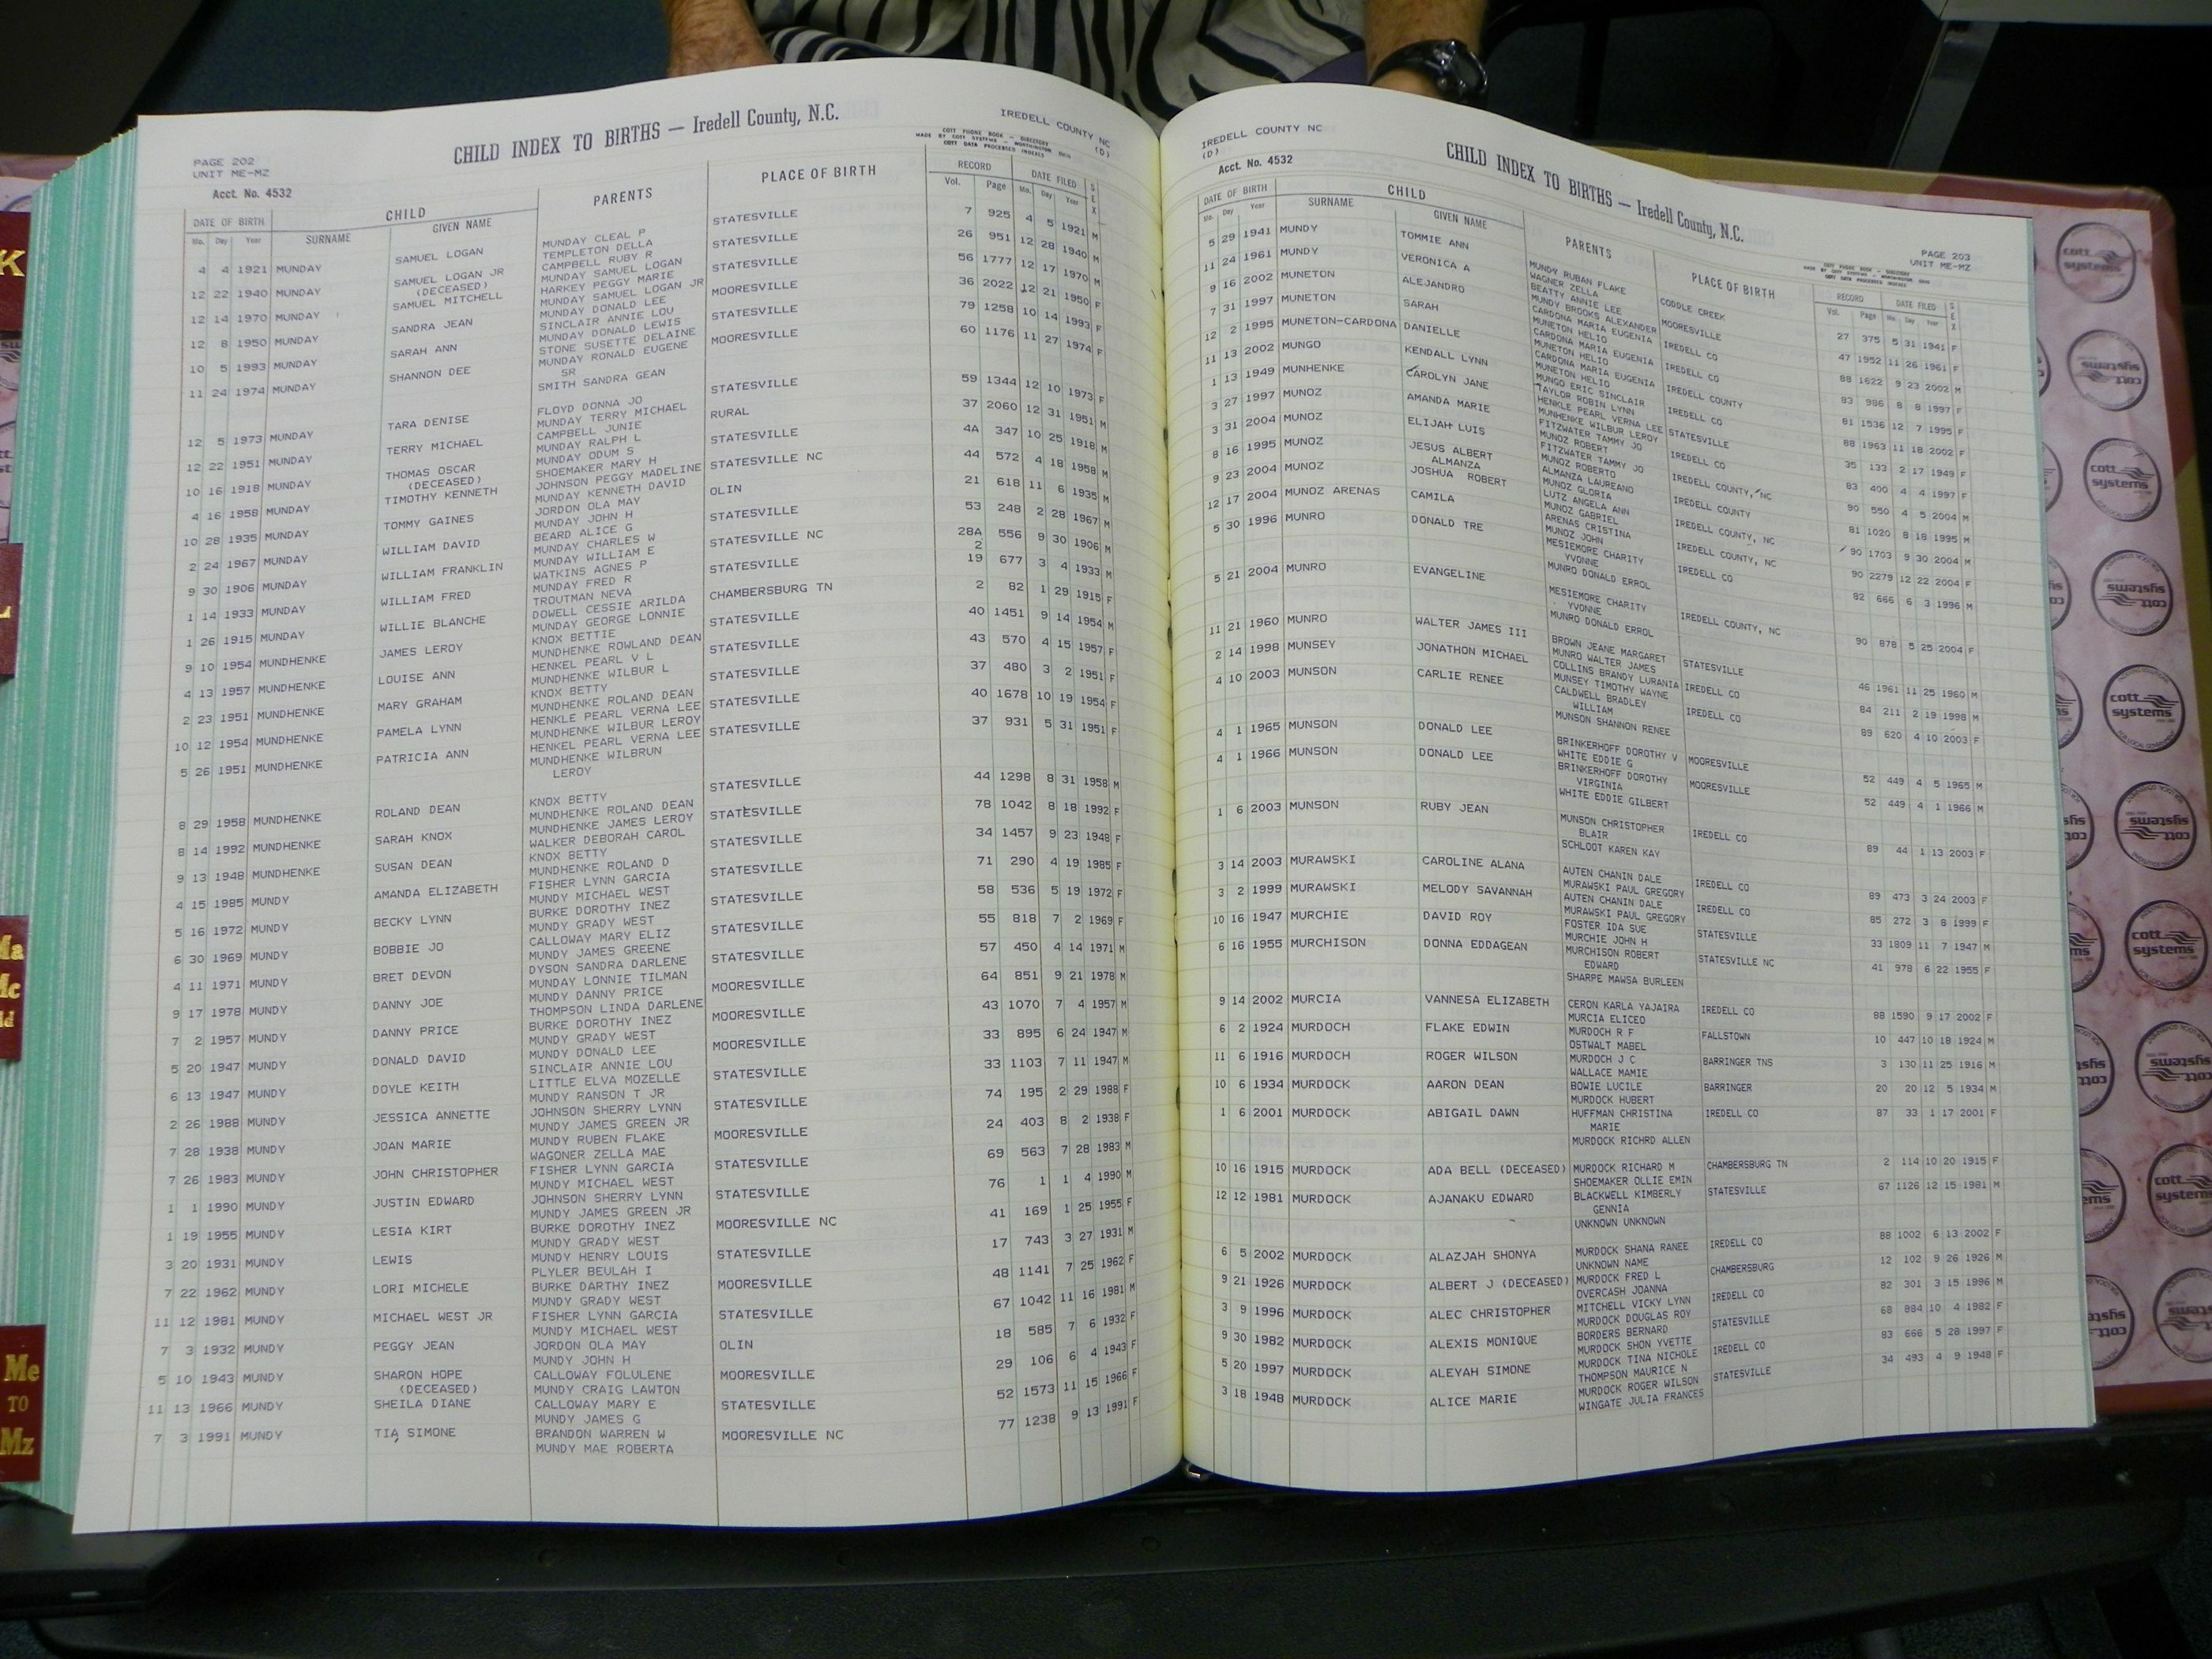 CHILD INDEX TO BIRTHS — Iredell County, N.C.
IREDELL COUNTY NC
(D)
COTT PHONE BOOK - DIRECTORY
MADE BY COTT SYSTEMS - WORTHINGTON OHIO
COTT DATA PROCESSED INDEXES
PAGE 202
UNIT ME-MZ
Acct. No. 4532
DATE OF BIRTH CHILD PARENTS PLACE OF BIRTH RECORD DATE FILED SEX
Mo. Day Year SURNAME GIVEN NAME Vol. Page Mo. Day Year
4 4 1921 MUNDAY SAMUEL LOGAN MUNDAY CLEAL P STATESVILLE 7 925 4 5 1921 M
TEMPLETON DELLA
12 22 1940 MUNDAY SAMUEL LOGAN JR CAMPBELL RUBY R STATESVILLE 26 951 12 28 1940 M
(DECEASED) MUNDAY SAMUEL LOGAN
12 14 1970 MUNDAY SAMUEL MITCHELL HARKEY PEGGY MARIE STATESVILLE 56 1777 12 17 1970 M
MUNDAY SAMUEL LOGAN JR
12 8 1950 MUNDAY SANDRA JEAN MUNDAY DONALD LEE MOORESVILLE 36 2022 12 21 1950 F
SINCLAIR ANNIE LOU
10 5 1993 MUNDAY SARAH ANN MUNDAY DONALD LEWIS STATESVILLE 79 1258 10 14 1993 F
STONE SUSETTE DELAINE
11 24 1974 MUNDAY SHANNON DEE MUNDAY RONALD EUGENE MOORESVILLE 60 1176 11 27 1974 F
SR
SMITH SANDRA GEAN
12 5 1973 MUNDAY TARA DENISE FLOYD DONNA JO STATESVILLE 59 1344 12 10 1973 F
MUNDAY TERRY MICHAEL
12 22 1951 MUNDAY TERRY MICHAEL CAMPBELL JUNIE RURAL 37 2060 12 31 1951 M
MUNDAY RALPH L
10 16 1918 MUNDAY THOMAS OSCAR MUNDAY ODUM S STATESVILLE 4A 347 10 25 1918 M
(DECEASED) SHOEMAKER MARY H
4 16 1958 MUNDAY TIMOTHY KENNETH JOHNSON PEGGY MADELINE STATESVILLE NC 44 572 4 18 1958 M
MUNDAY KENNETH DAVID
10 28 1935 MUNDAY TOMMY GAINES JORDON OLA MAY OLIN 21 618 11 6 1935 M
MUNDAY JOHN H
2 24 1967 MUNDAY WILLIAM DAVID BEARD ALICE G STATESVILLE 53 248 2 28 1967 M
MUNDAY CHARLES W
9 30 1906 MUNDAY WILLIAM FRANKLIN MUNDAY WILLIAM E STATESVILLE NC 28A 556 9 30 1906 M
WATKINS AGNES P 2
1 14 1933 MUNDAY WILLIAM FRED MUNDAY FRED R STATESVILLE 19 677 3 4 1933 M
TROUTMAN NEVA
1 26 1915 MUNDAY WILLIE BLANCHE DOWELL CESSIE ARILDA CHAMBERSBURG TN 2 82 1 29 1915 F
MUNDAY GEORGE LONNIE
9 10 1954 MUNDHENKE JAMES LEROY KNOX BETTIE STATESVILLE 40 1451 9 14 1954 M
MUNDHENKE ROWLAND DEAN
4 13 1957 MUNDHENKE LOUISE ANN HENKEL PEARL V L STATESVILLE 43 570 4 15 1957 F
MUNDHENKE WILBUR L
2 23 1951 MUNDHENKE MARY GRAHAM KNOX BETTY STATESVILLE 37 480 3 2 1951 F
MUNDHENKE ROLAND DEAN
10 12 1954 MUNDHENKE PAMELA LYNN HENKLE PEARL VERNA LEE STATESVILLE 40 1678 10 19 1954 F
MUNDHENKE WILBUR LEROY
5 26 1951 MUNDHENKE PATRICIA ANN HENKEL PEARL VERNA LEE STATESVILLE 37 931 5 31 1951 F
MUNDHENKE WILBRUN
LEROY
8 29 1958 MUNDHENKE ROLAND DEAN KNOX BETTY STATESVILLE 44 1298 8 31 1958 M
MUNDHENKE ROLAND DEAN
8 14 1992 MUNDHENKE SARAH KNOX MUNDHENKE JAMES LEROY STATESVILLE 78 1042 8 18 1992 F
WALKER DEBORAH CAROL
9 13 1948 MUNDHENKE SUSAN DEAN KNOX BETTY STATESVILLE 34 1457 9 23 1948 F
MUNDHENKE ROLAND D
4 15 1985 MUNDY AMANDA ELIZABETH FISHER LYNN GARCIA STATESVILLE 71 290 4 19 1985 F
MUNDY MICHAEL WEST
5 16 1972 MUNDY BECKY LYNN BURKE DOROTHY INEZ STATESVILLE 58 536 5 19 1972 F
MUNDY GRADY WEST
6 30 1969 MUNDY BOBBIE JO CALLOWAY MARY ELIZ STATESVILLE 55 818 7 2 1969 F
MUNDY JAMES GREENE
4 11 1971 MUNDY BRET DEVON DYSON SANDRA DARLENE STATESVILLE 57 450 4 14 1971 M
MUNDAY LONNIE TILMAN
9 17 1978 MUNDY DANNY JOE MUNDY DANNY PRICE MOORESVILLE 64 851 9 21 1978 M
THOMPSON LINDA DARLENE
7 2 1957 MUNDY DANNY PRICE BURKE DOROTHY INEZ MOORESVILLE 43 1070 7 4 1957 M
MUNDY GRADY WEST
5 20 1947 MUNDY DONALD DAVID MUNDY DONALD LEE MOORESVILLE 33 895 6 24 1947 M
SINCLAIR ANNIE LOU
6 13 1947 MUNDY DOYLE KEITH LITTLE ELVA MOZELLE STATESVILLE 33 1103 7 11 1947 M
MUNDY RANSON T JR
2 26 1988 MUNDY JESSICA ANNETTE JOHNSON SHERRY LYNN STATESVILLE 74 195 2 29 1988 F
MUNDY JAMES GREEN JR
7 28 1938 MUNDY JOAN MARIE MUNDY RUBEN FLAKE MOORESVILLE 24 403 8 2 1938 F
WAGONER ZELLA MAE
7 26 1983 MUNDY JOHN CHRISTOPHER FISHER LYNN GARCIA STATESVILLE 69 563 7 28 1983 M
MUNDY MICHAEL WEST
1 1 1990 MUNDY JUSTIN EDWARD JOHNSON SHERRY LYNN STATESVILLE 76 1 1 4 1990 M
MUNDY JAMES GREEN JR
1 19 1955 MUNDY LESIA KIRT BURKE DOROTHY INEZ MOORESVILLE NC 41 169 1 25 1955 F
MUNDY GRADY WEST
3 20 1931 MUNDY LEWIS MUNDY HENRY LOUIS STATESVILLE 17 743 3 27 1931 M
PLYLER BEULAH I
7 22 1962 MUNDY LORI MICHELE BURKE DARTHY INEZ MOORESVILLE 48 1141 7 25 1962 F
MUNDY GRADY WEST
11 12 1981 MUNDY MICHAEL WEST JR FISHER LYNN GARCIA STATESVILLE 67 1042 11 16 1981 M
MUNDY MICHAEL WEST
7 3 1932 MUNDY PEGGY JEAN JORDON OLA MAY OLIN 18 585 7 6 1932 F
MUNDY JOHN H
5 10 1943 MUNDY SHARON HOPE CALLOWAY FOLULENE MOORESVILLE 29 106 6 4 1943 F
(DECEASED) MUNDY CRAIG LAWTON
11 13 1966 MUNDY SHEILA DIANE CALLOWAY MARY E STATESVILLE 52 1573 11 15 1966 F
MUNDY JAMES G
7 3 1991 MUNDY TIA SIMONE BRANDON WARREN W MOORESVILLE NC 77 1238 9 13 1991 F
MUNDY MAE ROBERTA
IREDELL COUNTY NC
(D)
Acct. No. 4532
CHILD INDEX TO BIRTHS — Iredell County, N.C.
PAGE 203
UNIT ME-MZ
COTT PHONE BOOK - DIRECTORY
MADE BY COTT SYSTEMS - WORTHINGTON OHIO
COTT DATA PROCESSED INDEXES
DATE OF BIRTH CHILD PARENTS PLACE OF BIRTH RECORD DATE FILED SEX
Mo. Day Year SURNAME GIVEN NAME Vol. Page Mo. Day Year
5 29 1941 MUNDY TOMMIE ANN MUNDY RUBAN FLAKE CODDLE CREEK 27 375 5 31 1941 F
WAGNER ZELLA
11 24 1961 MUNDY VERONICA A BEATTY ANNIE LEE MOORESVILLE 47 1952 11 26 1961 F
MUNDY BROOKS ALEXANDER
9 16 2002 MUNETON ALEJANDRO CARDONA MARIA EUGENIA IREDELL CO 88 1622 9 23 2002 M
MUNETON HELIO
7 31 1997 MUNETON SARAH CARDONA MARIA EUGENIA IREDELL COUNTY 83 986 8 8 1997 F
MUNETON HELIO
12 2 1995 MUNETON-CARDONA DANIELLE CARDONA MARIA EUGENIA IREDELL CO 81 1536 12 7 1995 F
MUNETON HELIO
11 13 2002 MUNGO KENDALL LYNN MUNGO ERIC SINCLAIR IREDELL CO 88 1963 11 18 2002 F
TAYLOR ROBIN LYNN
1 13 1949 MUNHENKE CAROLYN JANE HENKLE PEARL VERNA LEE STATESVILLE 35 133 2 17 1949 F
MUNHENKE WILBUR LEROY
3 27 1997 MUNOZ AMANDA MARIE FITZWATER TAMMY JO IREDELL CO 83 400 4 4 1997 F
MUNOZ ROBERT
3 31 2004 MUNOZ ELIJAH LUIS FITZWATER TAMMY JO IREDELL COUNTY, NC 90 550 4 5 2004 M
MUNOZ ROBERTO
8 16 1995 MUNOZ JESUS ALBERT ALMANZA LAUREANO IREDELL COUNTY 81 1020 8 18 1995 M
ALMANZA MUNOZ GLORIA
9 23 2004 MUNOZ JOSHUA ROBERT LUTZ ANGELA ANN IREDELL COUNTY, NC 90 1703 9 30 2004 M
MUNOZ GABRIEL
12 17 2004 MUNOZ ARENAS CAMILA ARENAS CRISTINA IREDELL COUNTY, NC 90 2279 12 22 2004 F
MUNOZ JOHN
5 30 1996 MUNRO DONALD TRE MESIEMORE CHARITY IREDELL CO 82 666 6 3 1996 M
YVONNE
MUNRO DONALD ERROL
5 21 2004 MUNRO EVANGELINE MESIEMORE CHARITY IREDELL COUNTY, NC 90 878 5 25 2004 F
YVONNE
MUNRO DONALD ERROL
11 21 1960 MUNRO WALTER JAMES III BROWN JEANE MARGARET STATESVILLE 46 1961 11 25 1960 M
MUNRO WALTER JAMES
2 14 1998 MUNSEY JONATHON MICHAEL COLLINS BRANDY LURANIA IREDELL CO 84 211 2 19 1998 M
MUNSEY TIMOTHY WAYNE
4 10 2003 MUNSON CARLIE RENEE CALDWELL BRADLEY IREDELL CO 89 620 4 10 2003 F
WILLIAM
MUNSON SHANNON RENEE
4 1 1965 MUNSON DONALD LEE BRINKERHOFF DOROTHY V MOORESVILLE 52 449 4 5 1965 M
WHITE EDDIE G
4 1 1966 MUNSON DONALD LEE BRINKERHOFF DOROTHY MOORESVILLE 52 449 4 1 1966 M
VIRGINIA
WHITE EDDIE GILBERT
1 6 2003 MUNSON RUBY JEAN MUNSON CHRISTOPHER IREDELL CO 89 44 1 13 2003 F
BLAIR
SCHLOOT KAREN KAY
3 14 2003 MURAWSKI CAROLINE ALANA AUTEN CHANIN DALE IREDELL CO 89 473 3 24 2003 F
MURAWSKI PAUL GREGORY
3 2 1999 MURAWSKI MELODY SAVANNAH AUTEN CHANIN DALE IREDELL CO 85 272 3 8 1999 F
MURAWSKI PAUL GREGORY
10 16 1947 MURCHIE DAVID ROY FOSTER IDA SUE STATESVILLE 33 1809 11 7 1947 M
MURCHIE JOHN H
6 16 1955 MURCHISON DONNA EDDAGEAN MURCHISON ROBERT STATESVILLE NC 41 978 6 22 1955 F
EDWARD
SHARPE MAWSA BURLEEN
9 14 2002 MURCIA VANNESA ELIZABETH CERON KARLA YAJAIRA IREDELL CO 88 1590 9 17 2002 F
MURCIA ELICEO
6 2 1924 MURDOCH FLAKE EDWIN MURDOCH R F FALLSTOWN 10 447 10 18 1924 M
OSTWALT MABEL
11 6 1916 MURDOCH ROGER WILSON MURDOCH J C BARRINGER TNS 3 130 11 25 1916 M
WALLACE MAMIE
10 6 1934 MURDOCK AARON DEAN BOWIE LUCILE BARRINGER 20 20 12 5 1934 M
MURDOCK HUBERT
1 6 2001 MURDOCK ABIGAIL DAWN HUFFMAN CHRISTINA IREDELL CO 87 33 1 17 2001 F
MARIE
MURDOCK RICHRD ALLEN
10 16 1915 MURDOCK ADA BELL (DECEASED) MURDOCK RICHARD M CHAMBERSBURG TN 2 114 10 20 1915 F
SHOEMAKER OLLIE EMIN
12 12 1981 MURDOCK AJANAKU EDWARD BLACKWELL KIMBERLY STATESVILLE 67 1126 12 15 1981 M
GENNIA
UNKNOWN UNKNOWN
6 5 2002 MURDOCK ALAZJAH SHONYA MURDOCK SHANA RANEE IREDELL CO 88 1002 6 13 2002 F
UNKNOWN NAME
9 21 1926 MURDOCK ALBERT J (DECEASED) MURDOCK FRED L CHAMBERSBURG 12 102 9 26 1926 M
OVERCASH JOANNA
3 9 1996 MURDOCK ALEC CHRISTOPHER MITCHELL VICKY LYNN IREDELL CO 82 301 3 15 1996 M
MURDOCK DOUGLAS ROY
9 30 1982 MURDOCK ALEXIS MONIQUE BORDERS BERNARD STATESVILLE 68 884 10 4 1982 F
MURDOCK SHON YVETTE
5 20 1997 MURDOCK ALEYAH SIMONE MURDOCK TINA NICHOLE IREDELL CO 83 666 5 28 1997 F
THOMPSON MAURICE N
3 18 1948 MURDOCK ALICE MARIE MURDOCK ROGER WILSON STATESVILLE 34 493 4 9 1948 F
WINGATE JULIA FRANCES
K
L
Ma
Mc
Me
TO
Mz
cott
systems